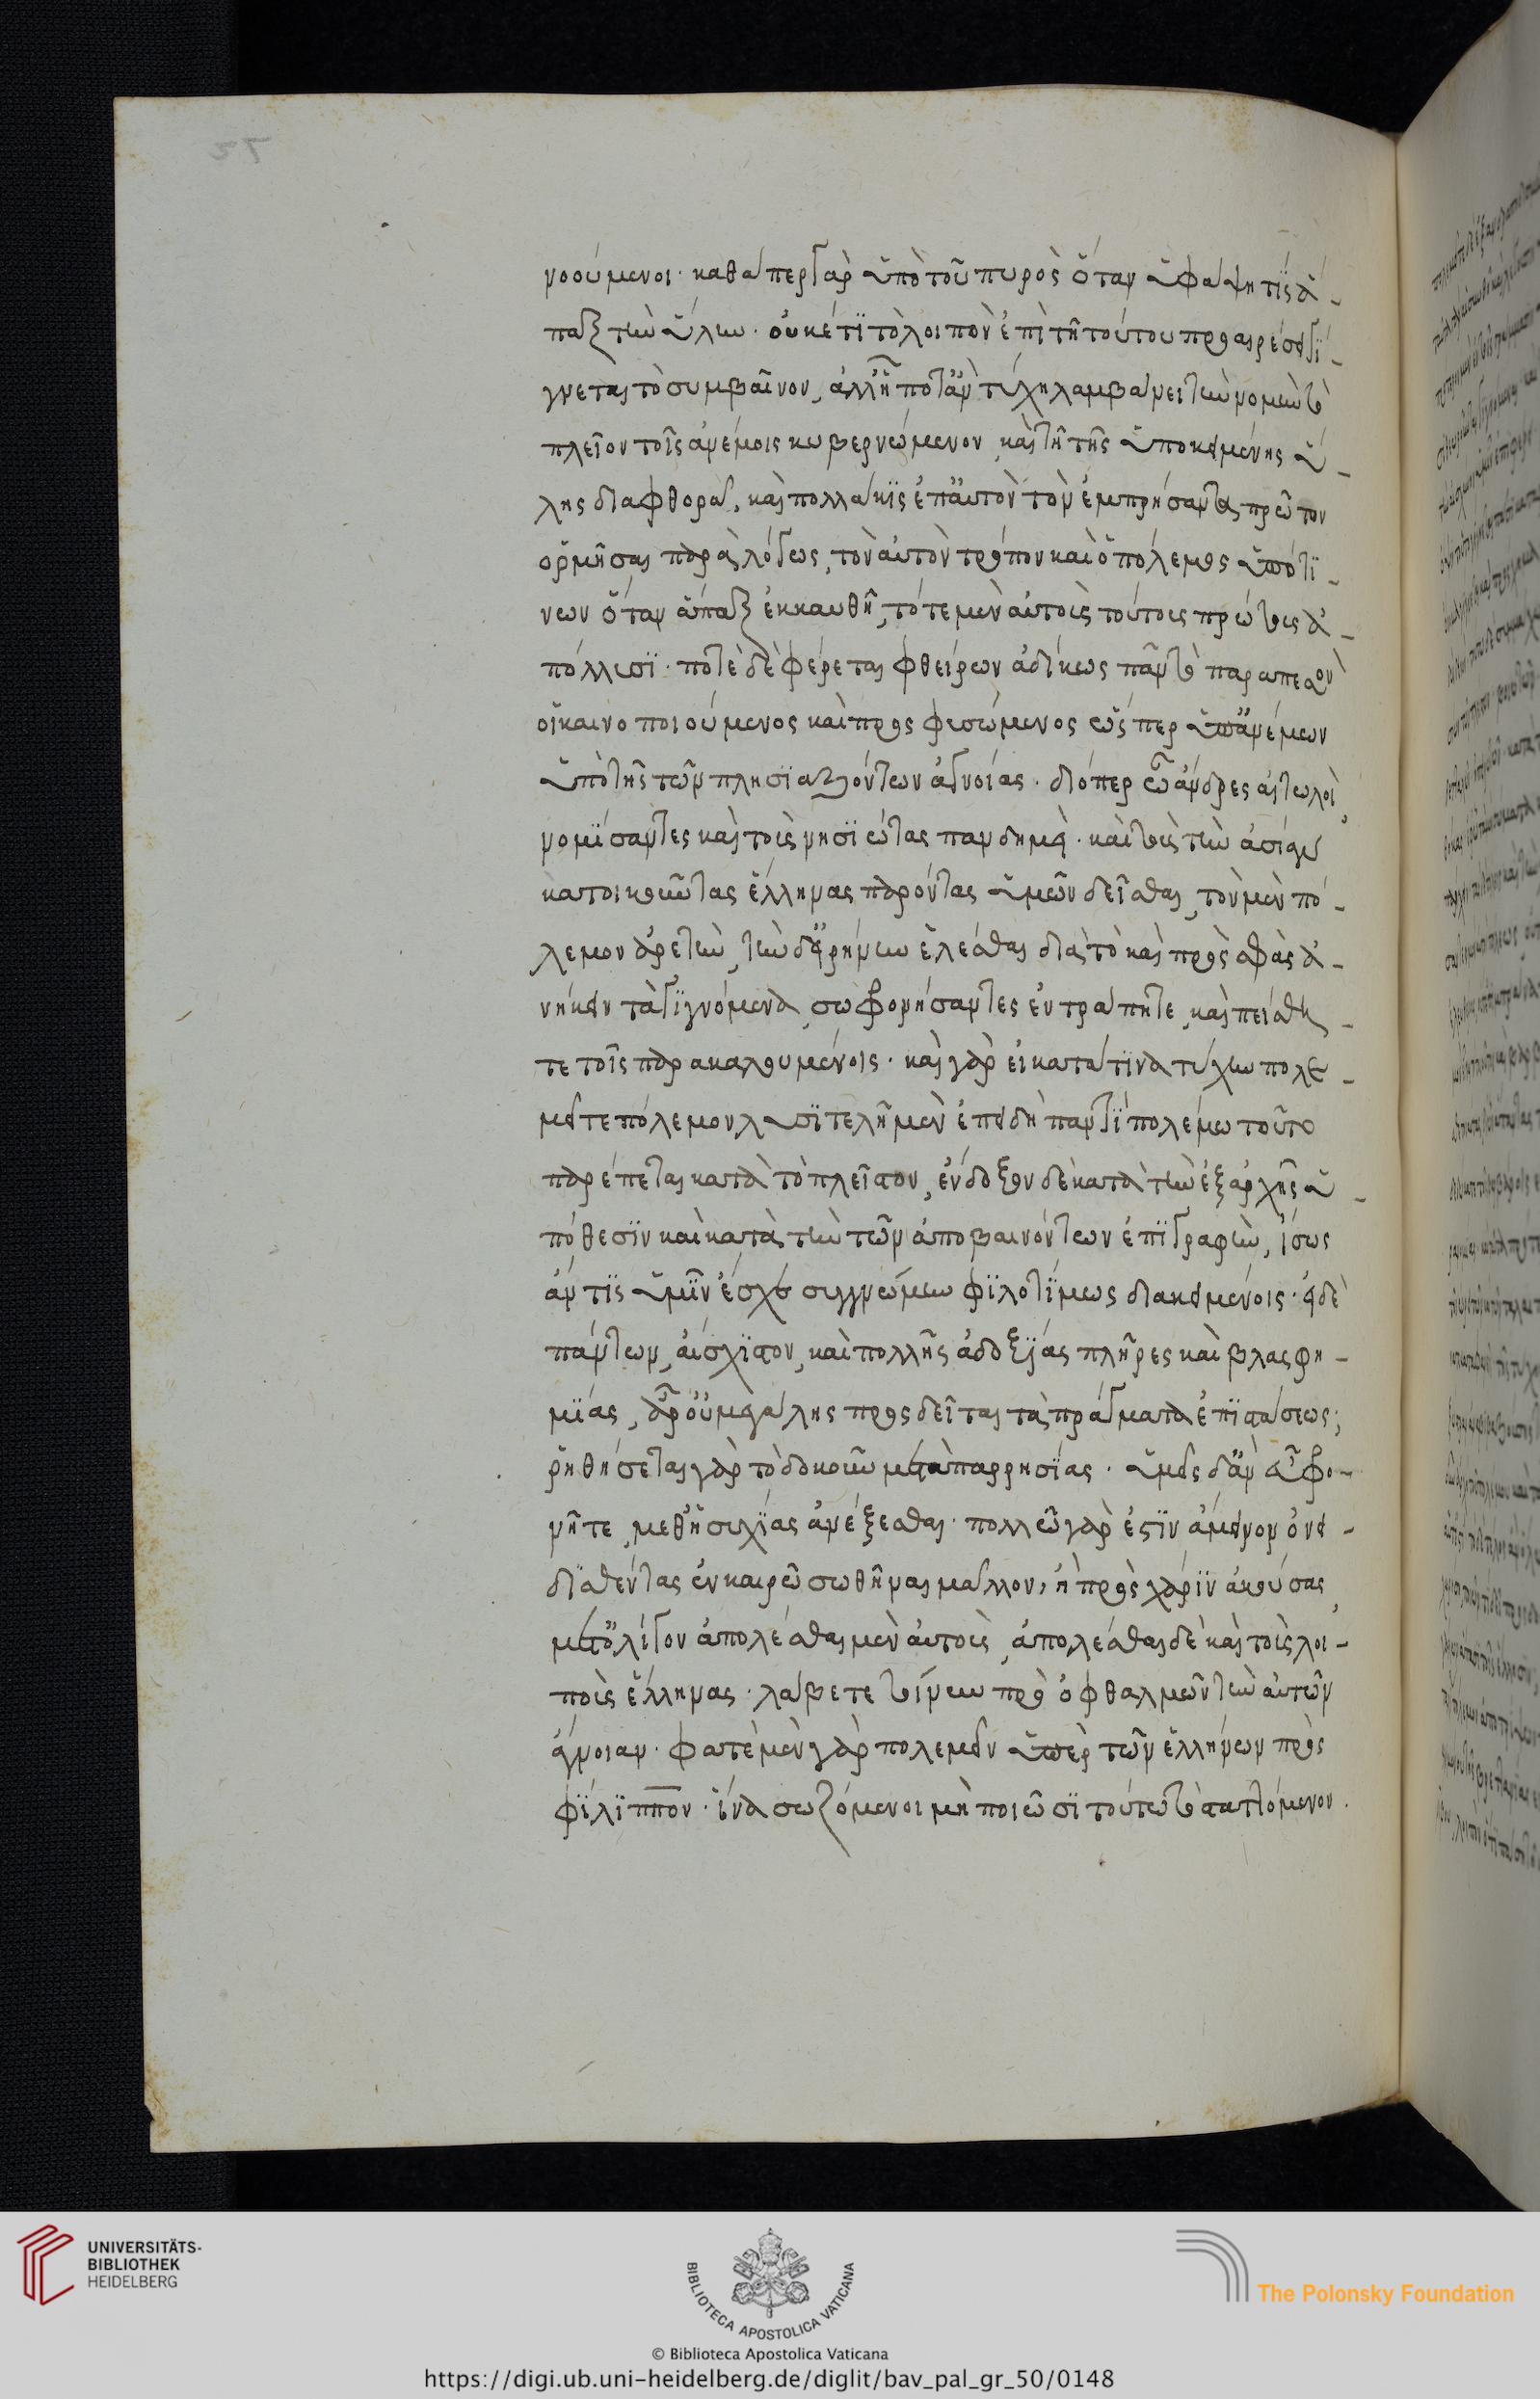 νοούμενοι· καθάπερ γὰρ ὑπὸ τοῦ πυρὸς ὅταν ὑφάψη τὶς ἅ-
παξ τὴν ὕλην· οὐκέτι τὸ λοιπὸν ἐπὶ τῆ τούτου προαιρέσει γί-
γνεται τὸ συμβαῖνον, ἀλλ' ἧ ποτ' ἂν τύχη λαμβάνει τὴν νομὴν τὸ
πλεῖον τοῖς ἀνέμοις κυβερνώμενον, καὶ τῆ τῆς ὑποκειμένης ὕ-
λης διαφθορᾶ, καὶ πολλάκις ἐπ' αὐτὸν τὸν ἐμπρήσαντα πρῶτον
ὥρμησαι παραλόγως, τὸν αὐτὸν τρόπον καὶ ὁ πόλεμος ὑπό τι-
νων ὅταν ἅπαξ ἐκκαυθῆ, τότε μὲν αὐτοὺς τούτους πρώτους ἀ-
πόλλυσι· ποτὲ δὲ φέρεται φθείρων ἀδίκως πᾶν τὸ παραπεσὸν
ἀεὶ καινοποιούμενος καὶ προσφυσώμενος ὥσπερ ὑπ' ἀνέμων
ὑπὸ τῆς τῶν πλησιαζόντων ἀγνοίας· διόπερ ὦ ἄνδρες αἰτωλοὶ,
νομίσαντες καὶ τοὺς νησιώτας πανδημεὶ· καὶ τοὺς τὴν ἀσίαν
κατοικοῦντας ἕλληνας παρόντας ὑμῶν δεῖσθαι, τὸν μὲν πό-
λεμον ἆραι τὴν, τὴν δ' εἰρήνην ἑλέσθαι διὰ τὸ καὶ πρὸς σφᾶς ἀ-
νήκειν τὰ γιγνόμενα, σωφρονήσαντες ἐντράπητε, καὶ πείσθη-
τε τοῖς παρακαλουμένοις· καὶ γὰρ εἰ κατά τινα τύχην πολε-
μεῖτε πόλεμον λυσιτελῆ μὲν ἐπειδὴ παντὶ πολέμω τοῦτο
παρέπεται κατὰ τὸ πλεῖστον, ἔνδοξον δὲ κατὰ τὴν ἐξ ἀρχῆς ὑ-
πόθεσιν καὶ κατὰ τὴν τῶν ἀποβαινόντων ἐπιγραφὴν, ἴσως
ἄν τις ὑμῖν ἔσχε συγγνώμην φιλοτίμως διακειμένοις· εἰ δὲ
πάντων, αἴσχιστον, καὶ πολλῆς ἀδοξίας πλῆρες καὶ βλασφη-
μίας, ἆρ' οὐ μεγάλης προσδεῖται τὰ πράγματα ἐπιστάσεως;
ῥηθήσεται γὰρ τὸ δοκοῦν μετὰ παρρησίας· ὑμεῖς δ' ἂν σωφρο-
νῆτε, μεθ' ἡσυχίας ἀνέξεσθαι· πολλῶ γὰρ ἐστὶν ἄμεινον ὀνει-
δισθέντας ἐν καιρῶ σωθῆναι μᾶλλον, ἢ πρὸς χάριν ἀκούσας,
μετ' ὀλίγον ἀπολέσθαι μὲν αὐτοὺς, ἀπολέσθαι δὲ καὶ τοὺς λοι-
ποὺς ἕλληνας· λάβετε τοίνυν πρὸ ὀφθαλμῶν τὴν αὐτῶν
ἄγνοιαν· φατὲ μὲν γὰρ πολεμεῖν ὑπὲρ τῶν ἑλλήνων πρὸς
φίλιππον· ἵνα σωζόμενοι μὴ ποιῶσι τούτω τὸ ταττόμενον.
UNIVERSITÄTS-
BIBLIOTHEK
HEIDELBERG
BIBLIOTECA APOSTOLICA VATICANA
The Polonsky Foundation
© Biblioteca Apostolica Vaticana
https://digi.ub.uni-heidelberg.de/diglit/bav_pal_gr_50/0148